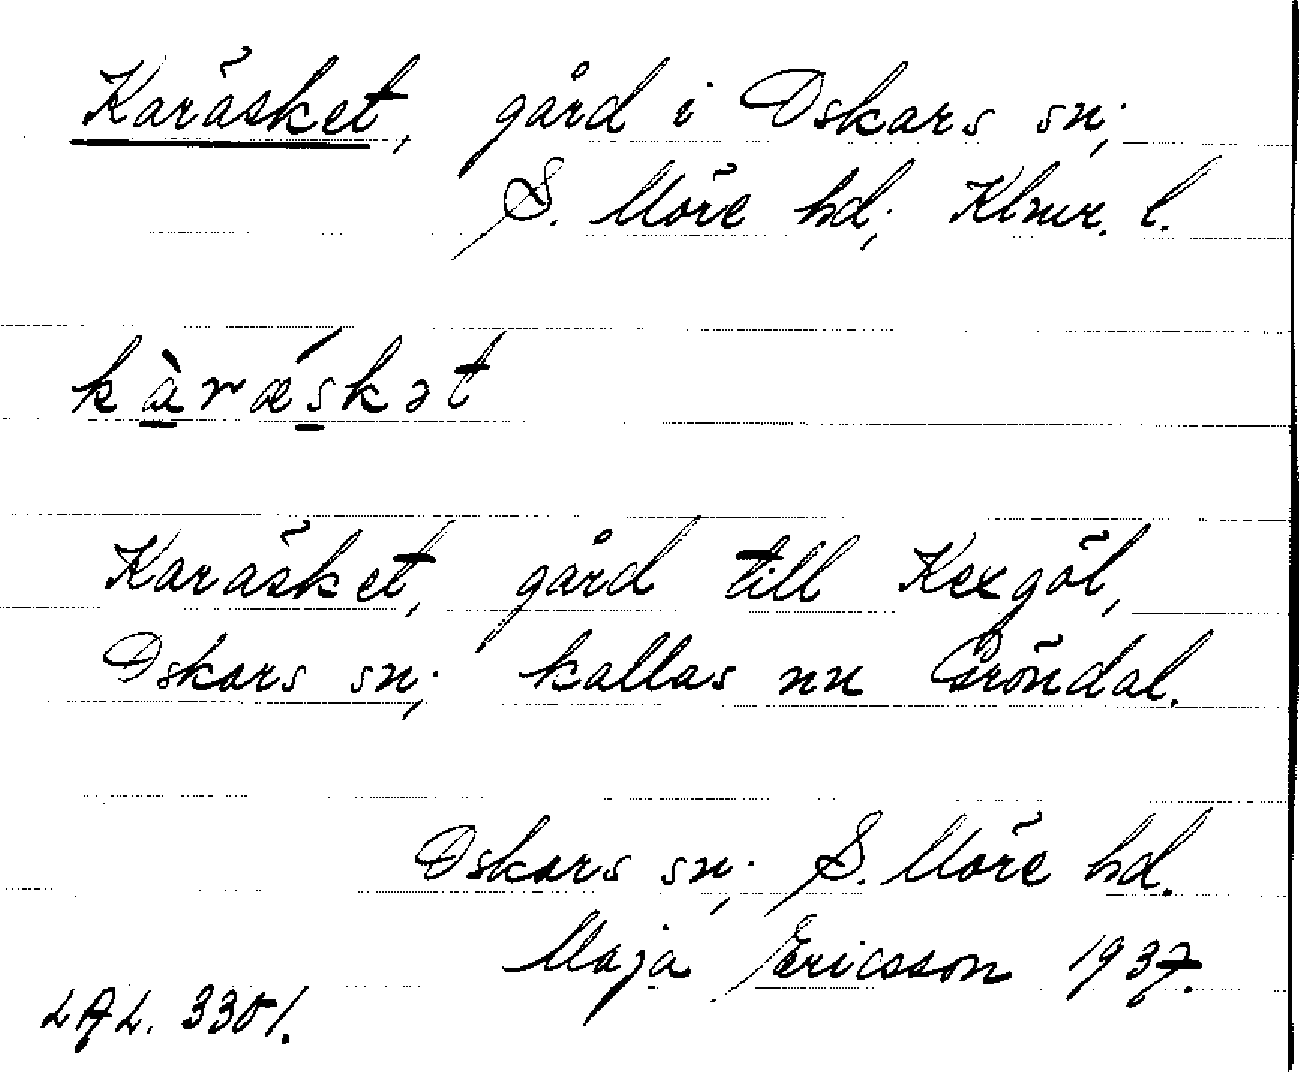 Karäsket, gård i Oskars sn;
S. Möre hd; Klmr. l.
kàræ´skət
Karäsket, gård till Kexgöl,
Oskars sn; kallas nu Gröndal.
Oskars sn; S. Möre hd.
Maja Ericsson 1937.
LAL. 3301.